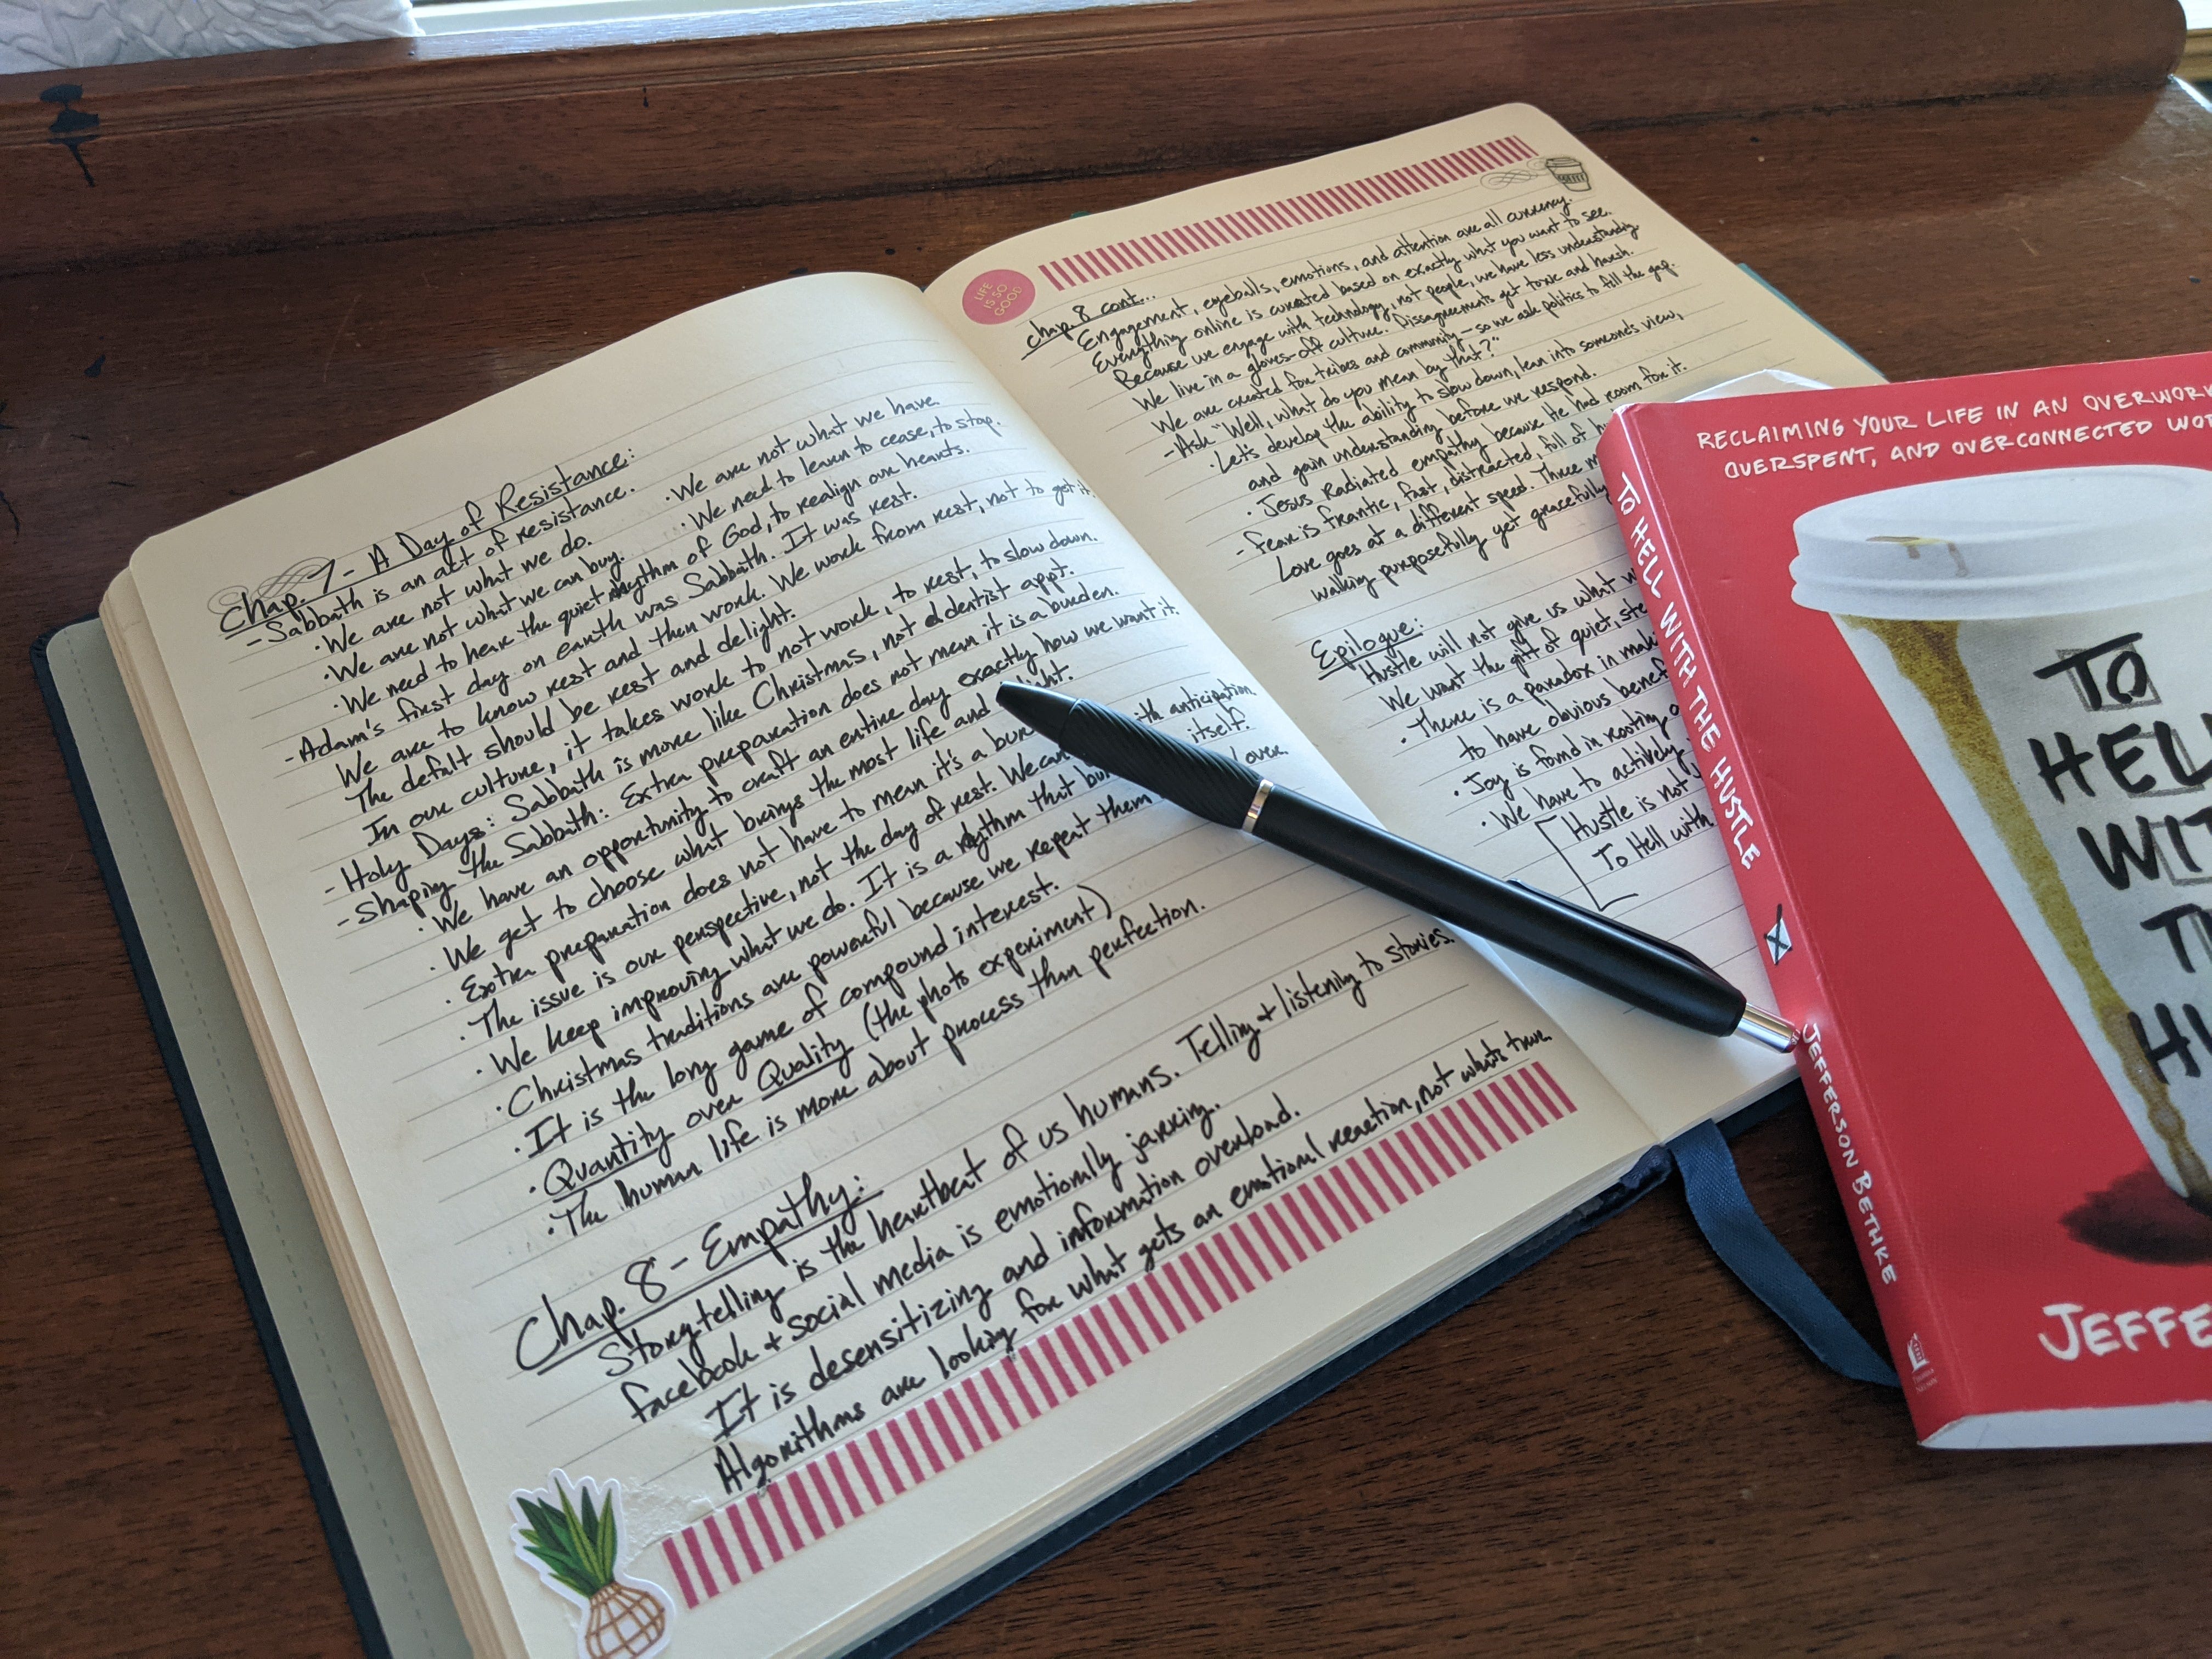 Chap. 7 - A Day of Resistance:
- Sabbath is an act of resistance.
· We are not what we do.
· We are not what we have.
· We are not what we can buy.
· We need to learn to cease, to stop.
· We need to hear the quiet rhythm of God, to realign our hearts.
- Adam's first day on earth was Sabbath. It was rest.
We are to know rest and then work. We work from rest, not to get it.
The defalt should be rest and delight.
In our culture, it takes work to not work, to rest, to slow down.
- Holy Days: Sabbath is more like Christmas, not dentist appt.
- Shaping the Sabbath: Extra preparation does not mean it is a burden.
· We have an opportunity to craft an entire day exactly how we want it.
· We get to choose what brings the most life and
· Extra preparation does not have to mean it's a
The issue is our perspective, not the day of rest. We can with anticipation.
· We keep improving what we do. It is a rhythm that itself.
· Christmas traditions are powerful because we repeat them over.
· It is the long game of compound interest.
· Quantity over Quality (the photo experiment)
· The human life is more about process than perfection.
Chap. 8 - Empathy:
Storytelling is the heartbeat of us humans. Telling + listening to stories.
Facebook + social media is emotionally jarring.
It is desensitizing and information overload.
Algorithms are looking for what gets an emotional reaction, not what's true.
LIFE
IS SO
GOOD
COFFEE
Chap. 8 cont...
Engagement, eyeballs, emotions, and attention are all currency.
Everything online is curated based on exactly what you want to see.
Because we engage with technology, not people, we have less understanding
We live in a gloves-off culture. Disagreements get toxic and harsh.
We are created for tribes and community - so we ask politics to fill the gap.
- Ask "Well, what do you mean by that?"
· Let's develop the ability to slow down, lean into someone's view,
and gain understanding before we respond.
· Jesus radiated empathy because He had room for it.
- Fear is frantic, fast, distracted, full of
Love goes at a different speed. Three
walking purposefully yet gracefully
Epilogue:
Hustle will not give us what
We want the gift of quiet,
· There is a paradox in
to have obvious
· Joy is found in rooting
· We have to actively
Hustle is not
To Hell with
RECLAIMING YOUR LIFE IN AN
OVERSPENT, AND OVERCONNECTED
TO
HELL
WITH
TO HELL WITH THE HUSTLE
JEFFERSON BETHKE